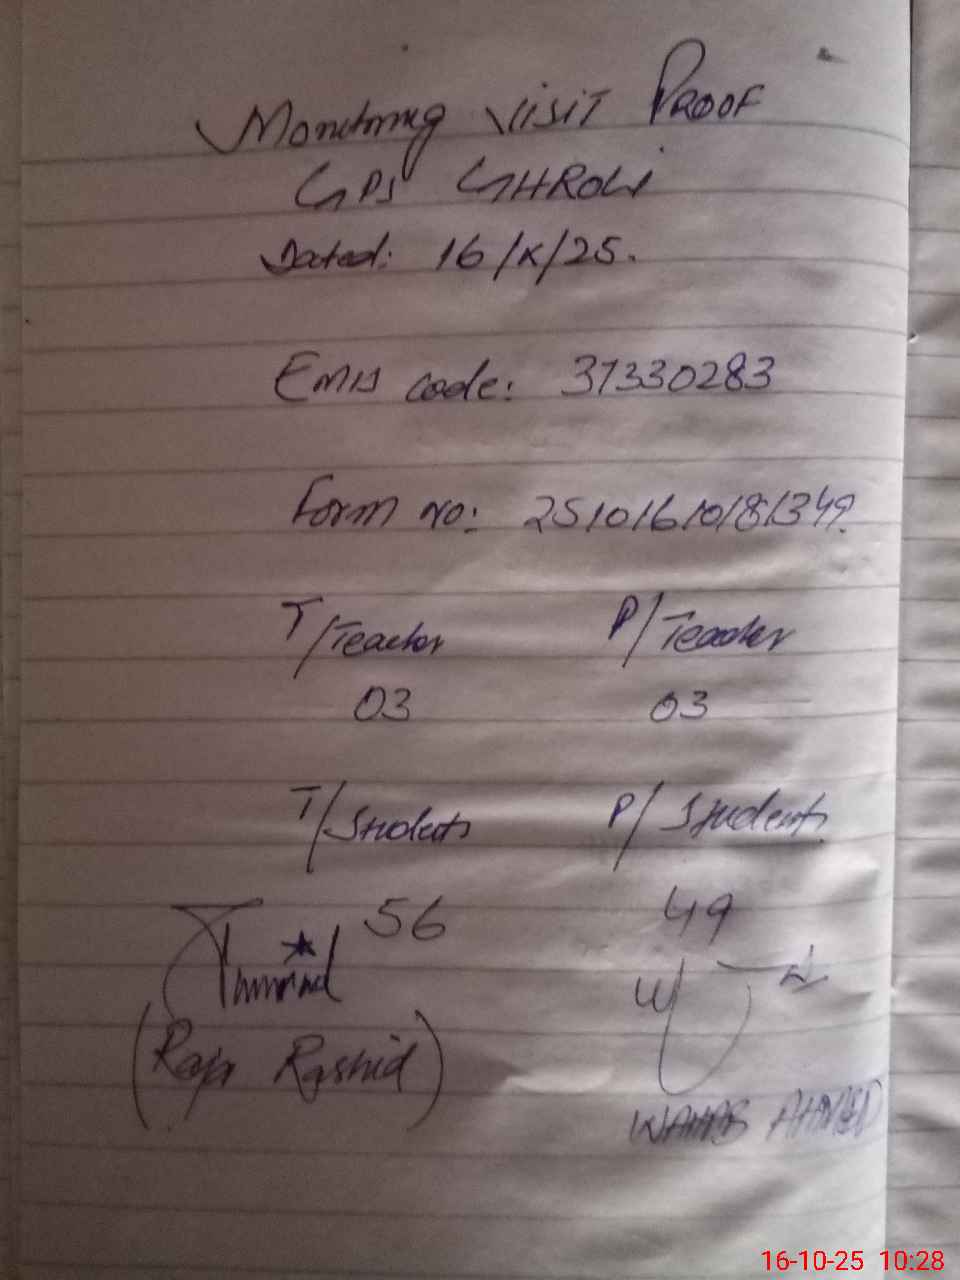 Monitoring VISIT PROOF
GPS GHROLI
Dated: 16/X/25.
EMIS code: 37330283
Form no: 25101610181349
T/Teacher P/Teacher
03 03
T/Students P/Students
56 49
(Raja Rashid)
WAHAB AHMED
16-10-25 10:28